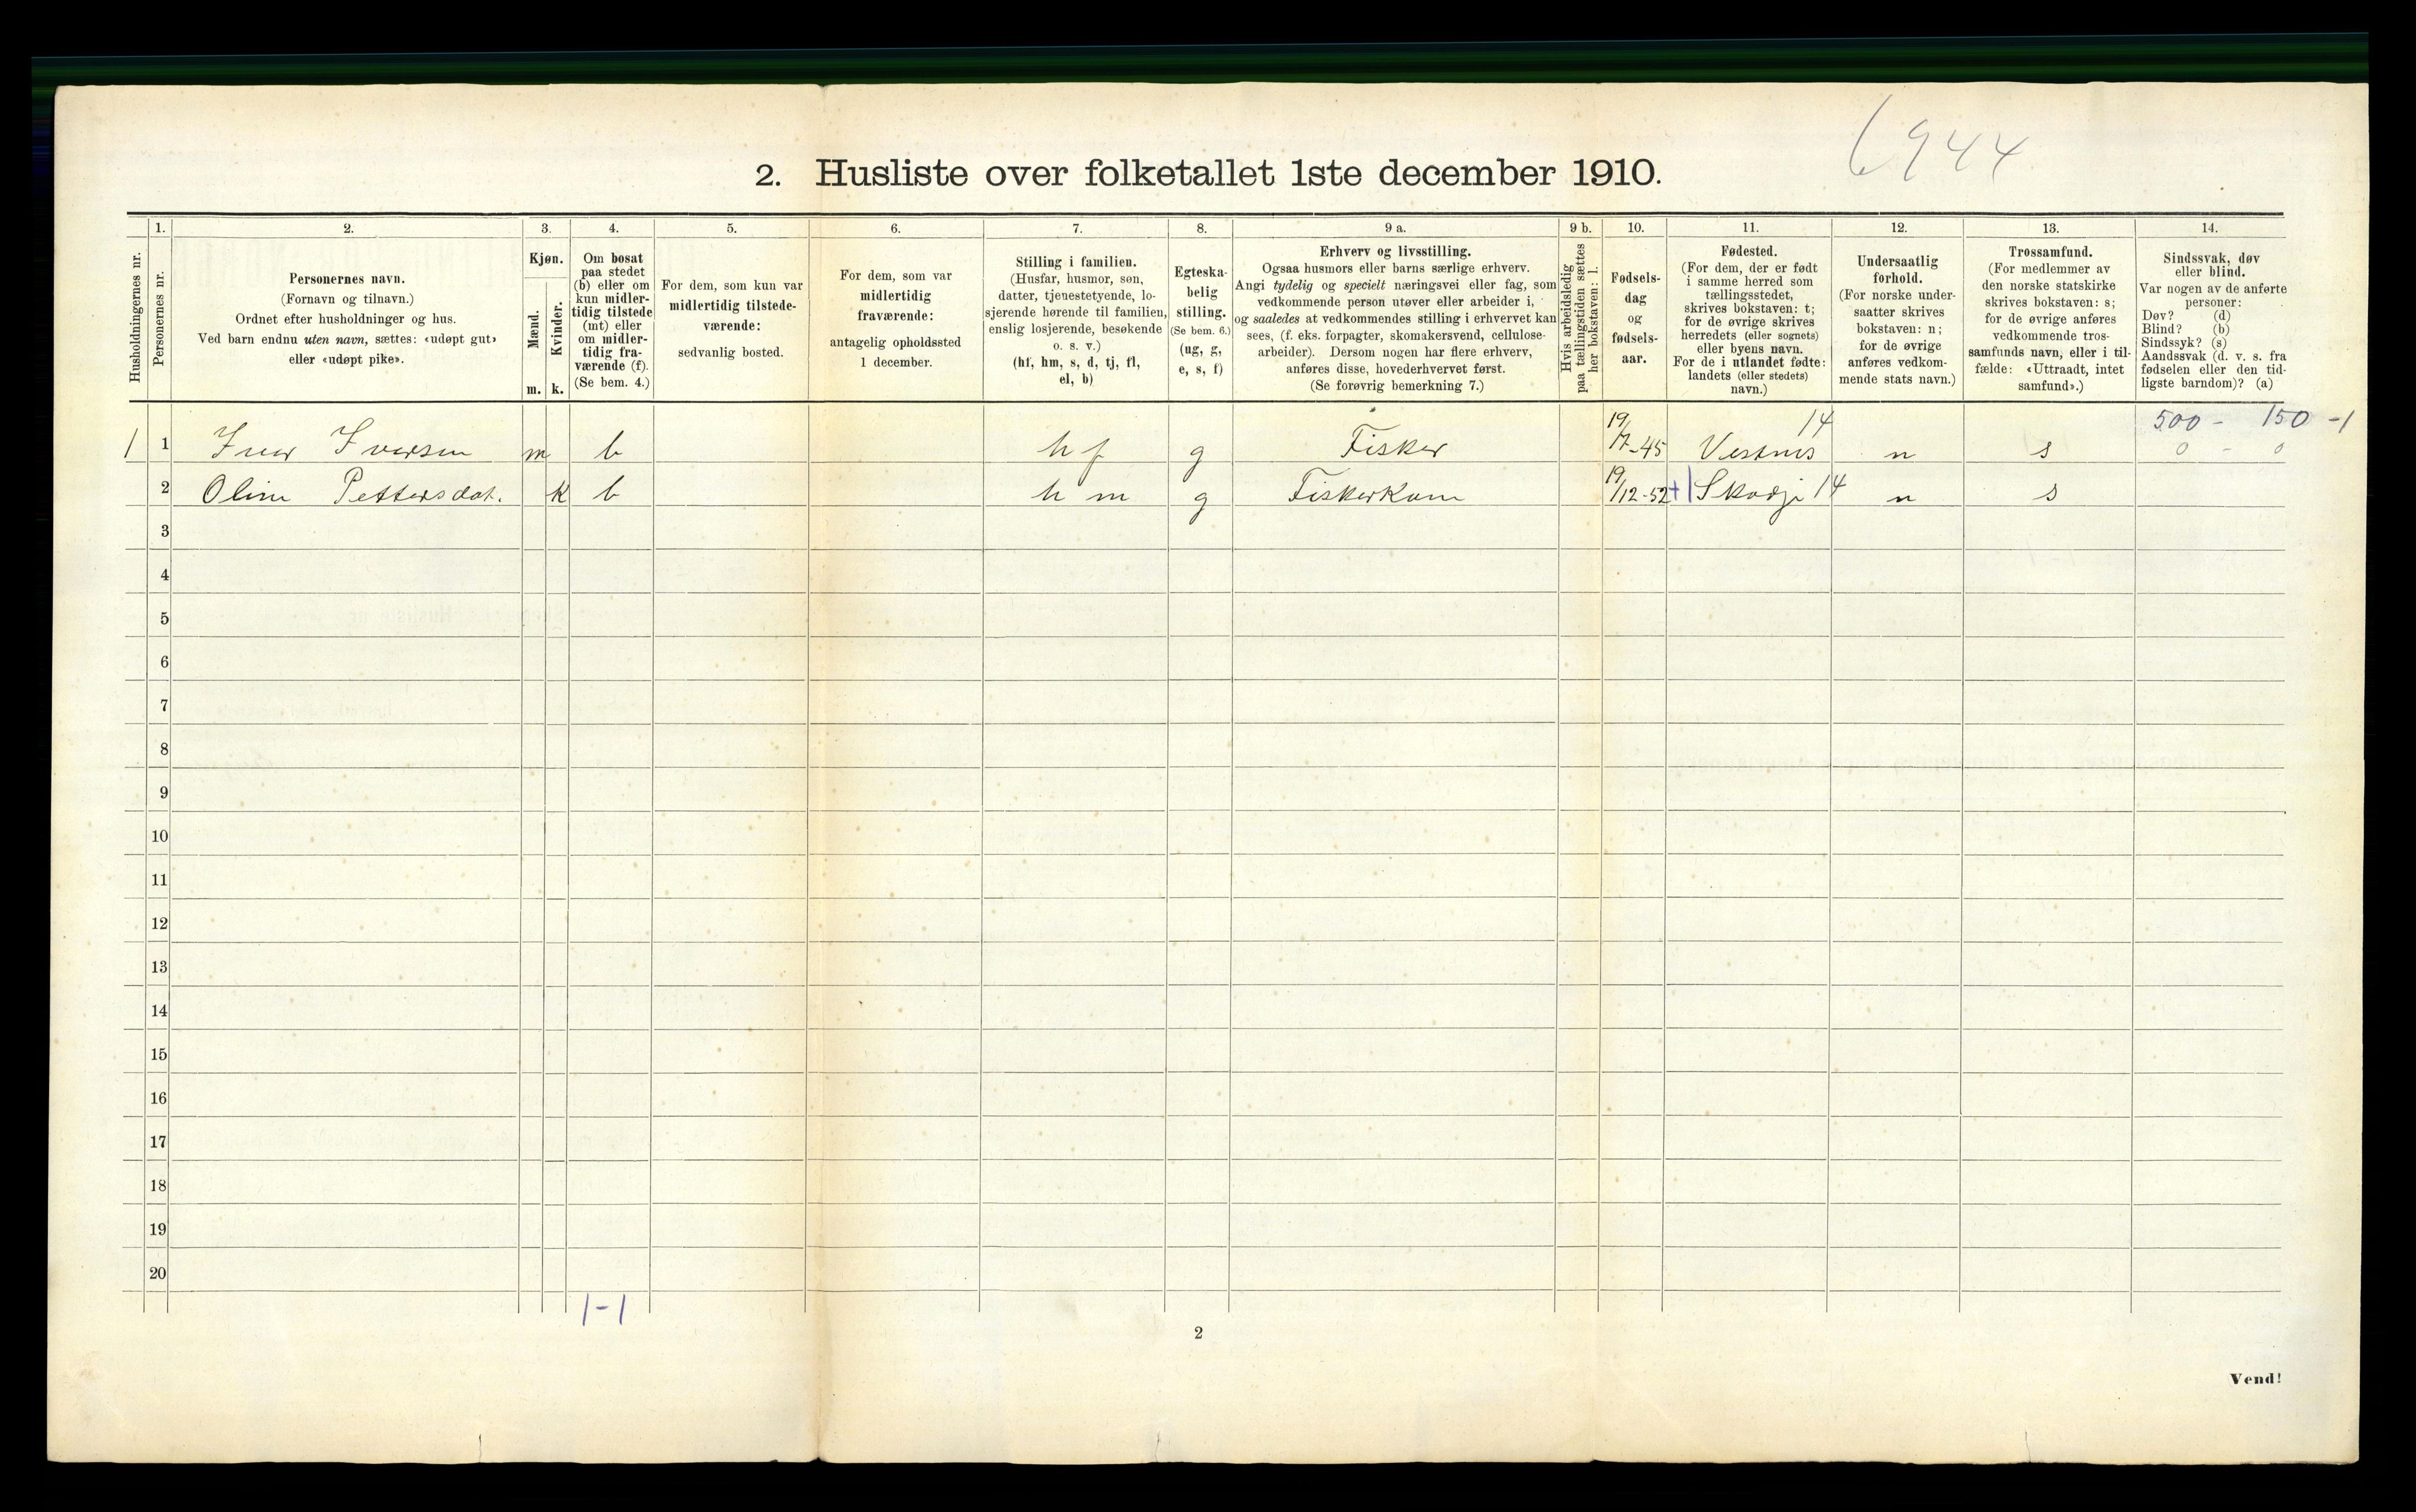 6944
2. Husliste over folketallet 1ste december 1910.
Husholdningernes nr.
1. Personernes nr.
2. Personernes navn.
(Fornavn og tilnavn.)
Ordnet efter husholdninger og hus.
Ved barn endnu uten navn, sættes: «udøpt gut»
eller «udøpt pike».
3. Kjøn.
Mænd. m.
Kvinder. k.
4. Om bosat
paa stedet
(b) eller om
kun midler-
tidig tilstede
(mt) eller
om midler-
tidig fra-
værende (f).
(Se bem. 4.)
5. For dem, som kun var
midlertidig tilstede-
værende:
sedvanlig bosted.
6. For dem, som var
midlertidig
fraværende:
antagelig opholdssted
1 december.
7. Stilling i familien.
(Husfar, husmor, søn,
datter, tjenestetyende, lo-
sjerende hørende til familien,
enslig losjerende, besøkende
o. s. v.)
(hf, hm, s, d, tj, fl,
el, b)
8. Egteska-
belig
stilling.
(Se bem. 6.)
(ug, g,
e, s, f)
9 a. Erhverv og livsstilling.
Ogsaa husmors eller barns særlige erhverv.
Angi tydelig og specielt næringsvei eller fag, som
vedkommende person utøver eller arbeider i,
og saaledes at vedkommendes stilling i erhvervet kan
sees, (f. eks. forpagter, skomakersvend, cellulose-
arbeider). Dersom nogen har flere erhverv,
anføres disse, hovederhvervet først.
(Se forøvrig bemerkning 7.)
9 b. Hvis arbeidsledig
paa tællingstiden sættes
her bokstaven: l.
10. Fødsels-
dag
og
fødsels-
aar.
11. Fødested.
(For dem, der er født
i samme herred som
tællingsstedet,
skrives bokstaven: t;
for de øvrige skrives
herredets (eller sognets)
eller byens navn.
For de i utlandet fødte:
landets (eller stedets)
navn.)
12. Undersaatlig
forhold.
(For norske under-
saatter skrives
bokstaven: n;
for de øvrige
anføres vedkom-
mende stats navn.)
13. Trossamfund.
(For medlemmer av
den norske statskirke
skrives bokstaven: s;
for de øvrige anføres
vedkommende tros-
samfunds navn, eller i til-
fælde: «Uttraadt, intet
samfund».)
14. Sindssvak, døv
eller blind.
Var nogen av de anførte
personer:
Døv? (d)
Blind? (b)
Sindssyk? (s)
Aandssvak (d. v. s. fra
fødselen eller den tid-
ligste barndom)? (a)
14 500 - 150 -1
1 1 Iver Iversen m b hf g Fisker Vestnes n s 0 - 0
2 Oline Pettersdat. k b hm g Fiskerkone 19/12-52 +1 Skodje 14 n s
3
4
5
6
7
8
9
10
11
12
13
14
15
16
17
18
19
20
1-1
2
Vend!